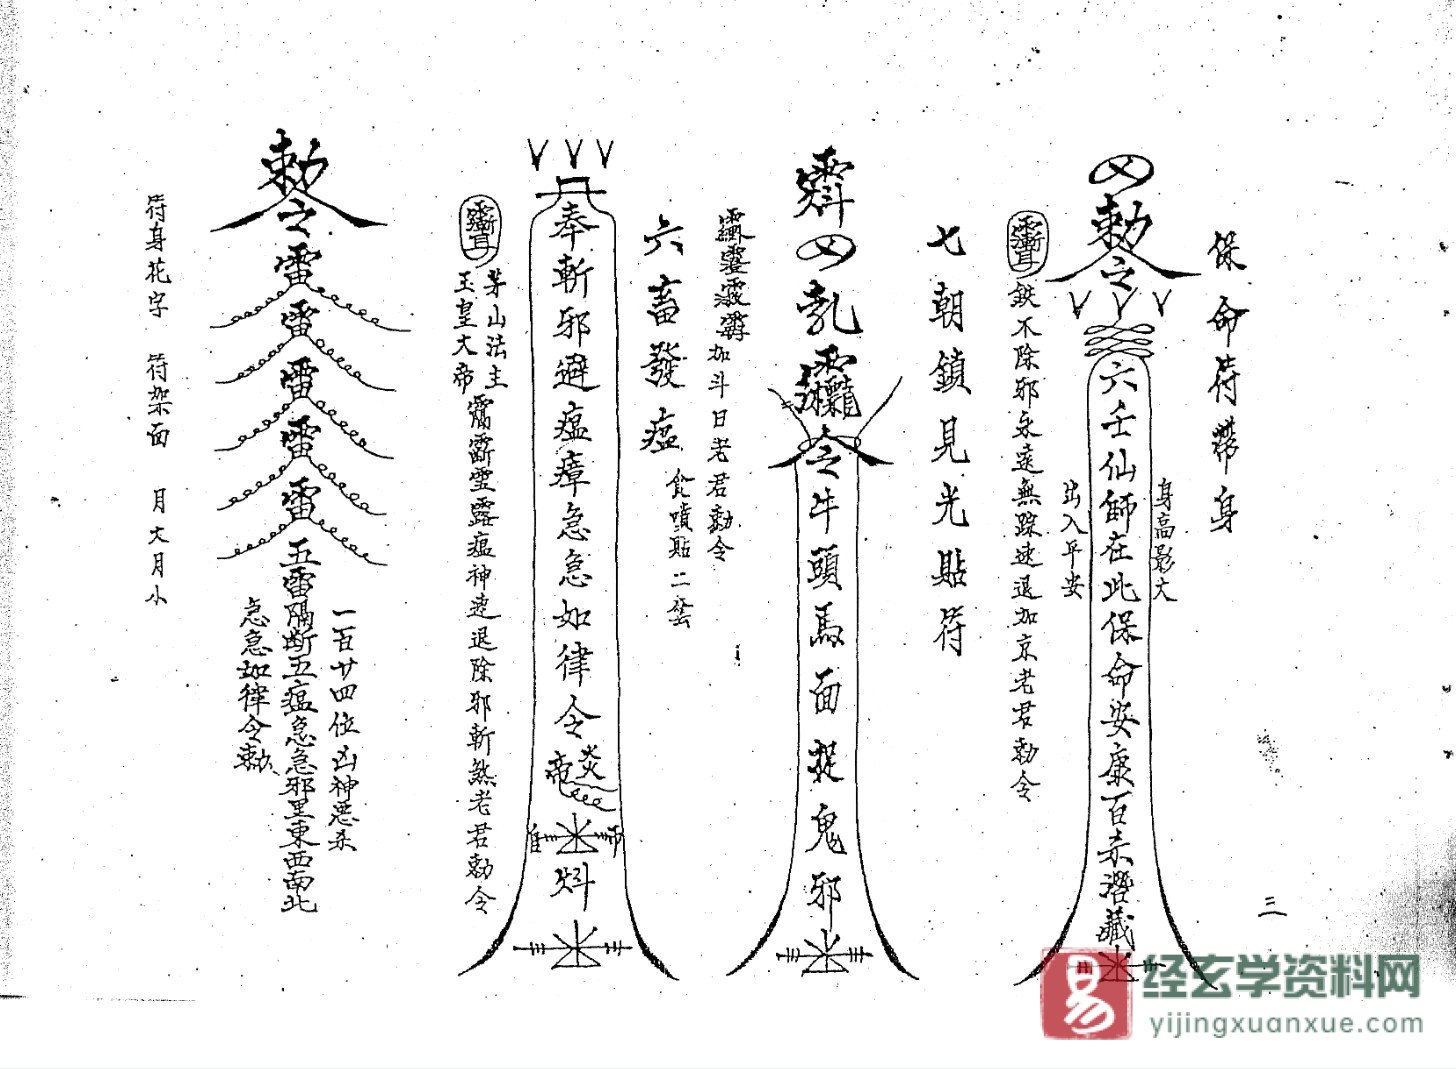 保命符帶身
身高影大
敕令
六壬仙師在此保命安康百赤潛藏
出入平安
鉄不除邪永遠無踪速退加京老君勅令
三
七朝鎖見光貼符
令牛頭馬面捉鬼邪
加斗日老君勅令
六畜發瘟
食噴貼二叄
奉斬邪避瘟瘴急急如律令
炎帝
茅山法主
玉皇大帝
瘟神速退除邪斬煞老君勅令
一百廿四位凶神惡杀
敕令雷雷雷雷雷五雷隔断五瘟急急邪里東西南北
急急如律令勅
符身花字 符架面 月大月小
经玄学资料网
yijingxuanxue.com
易